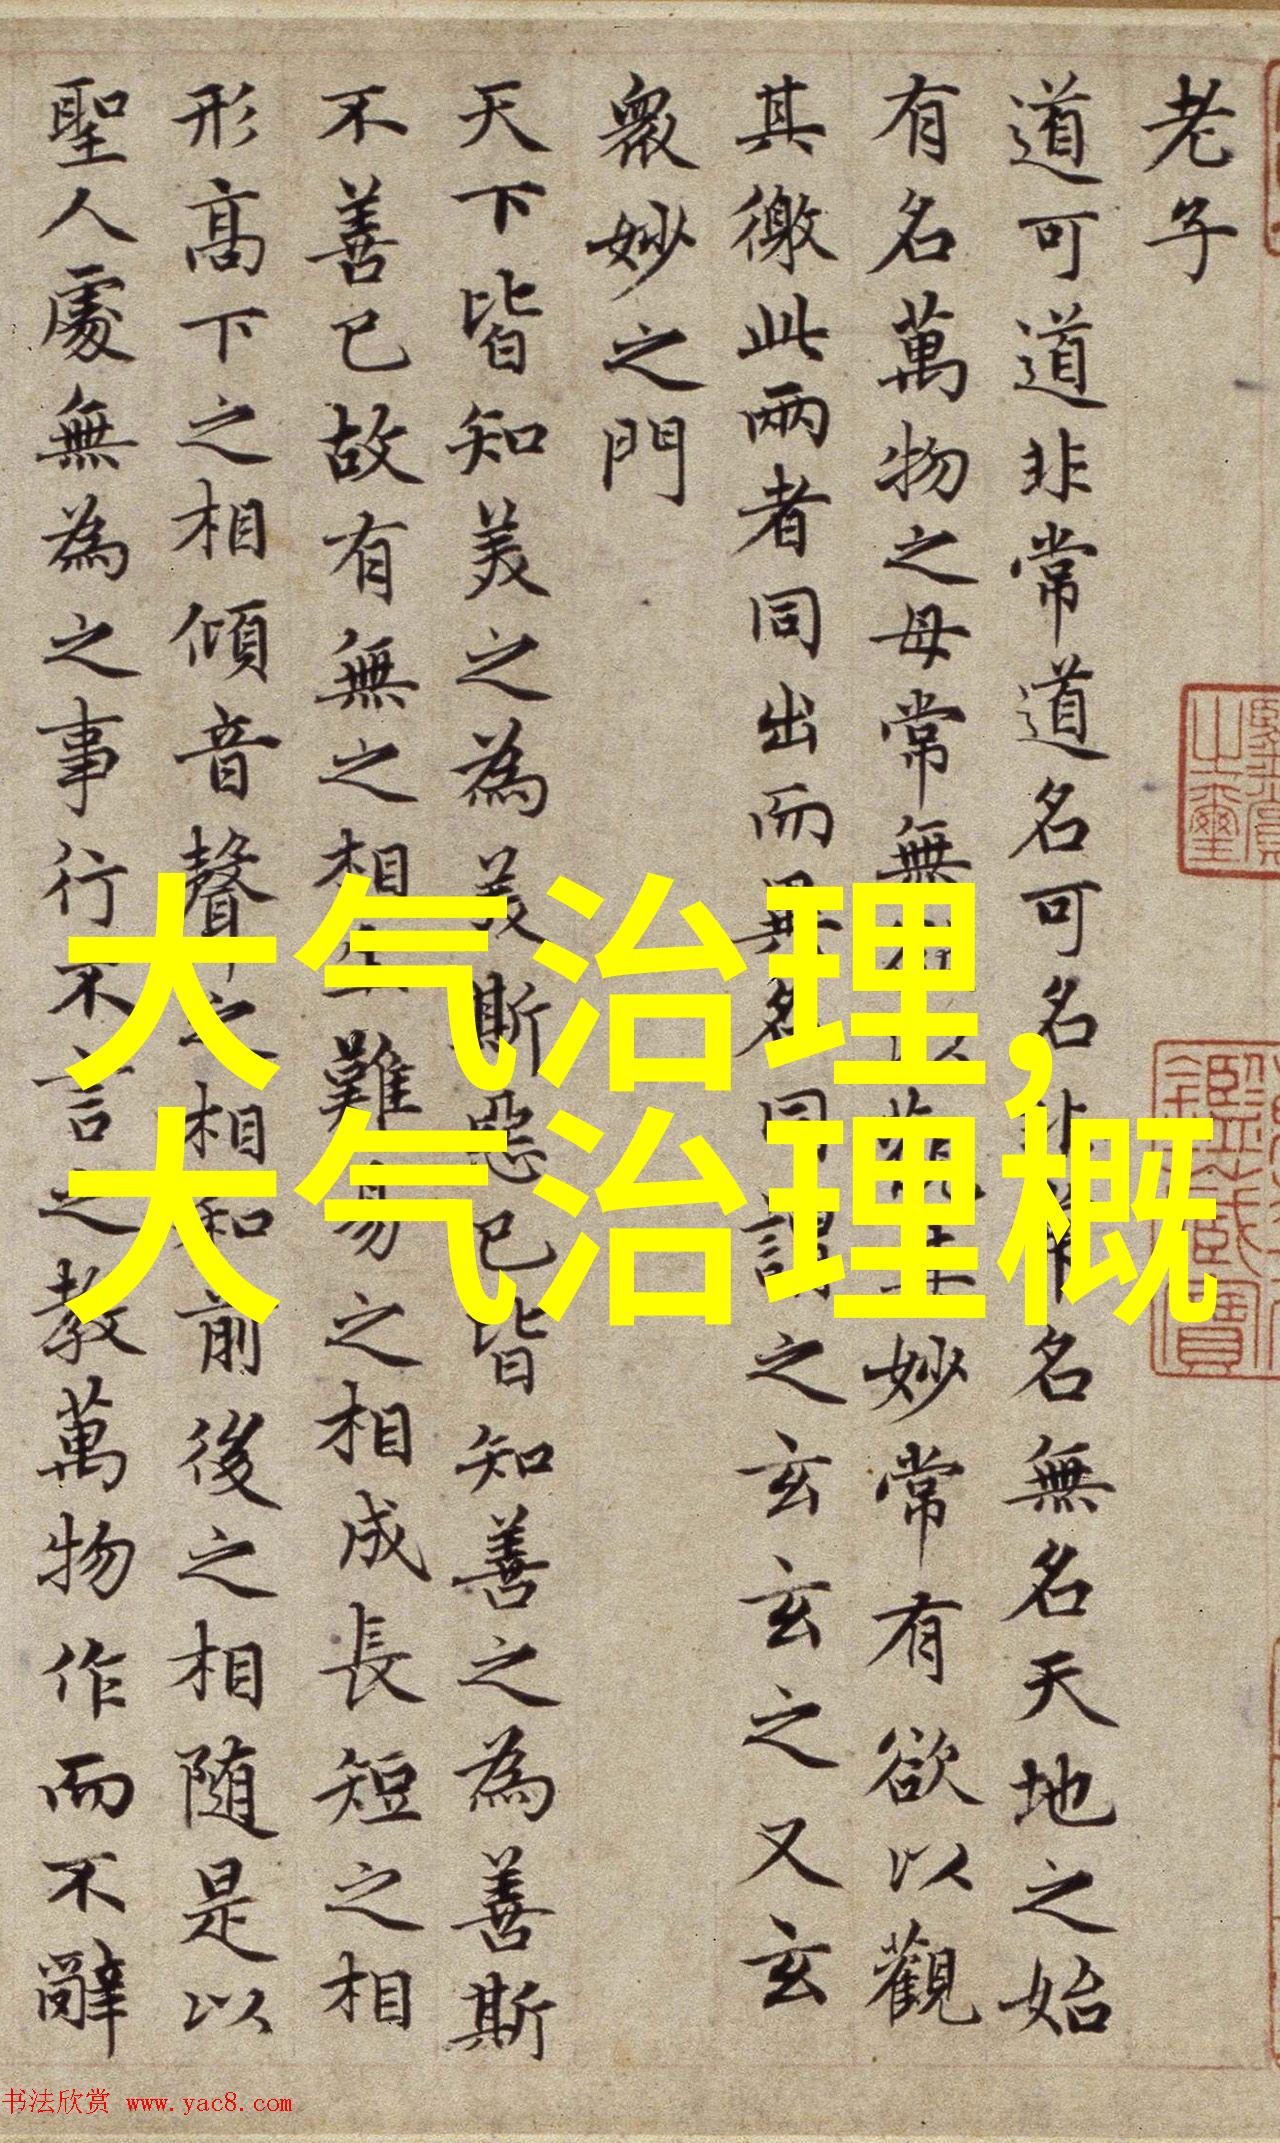 老子
道可道非常道名可名非常名無名天地之始
有名萬物之母常無欲以觀其妙常有欲以觀
其徼此兩者同出而異名同謂之玄玄之又玄
衆妙之門
天下皆知美之為美斯惡已皆知善之為善斯
不善已故有無之相生難易之相成長短之相
形高下之相傾音聲之相和前後之相随是以
聖人處無為之事行不言之教萬物作而不辭
大气治理,
大气治理概
书法欣赏 www.yac8.com